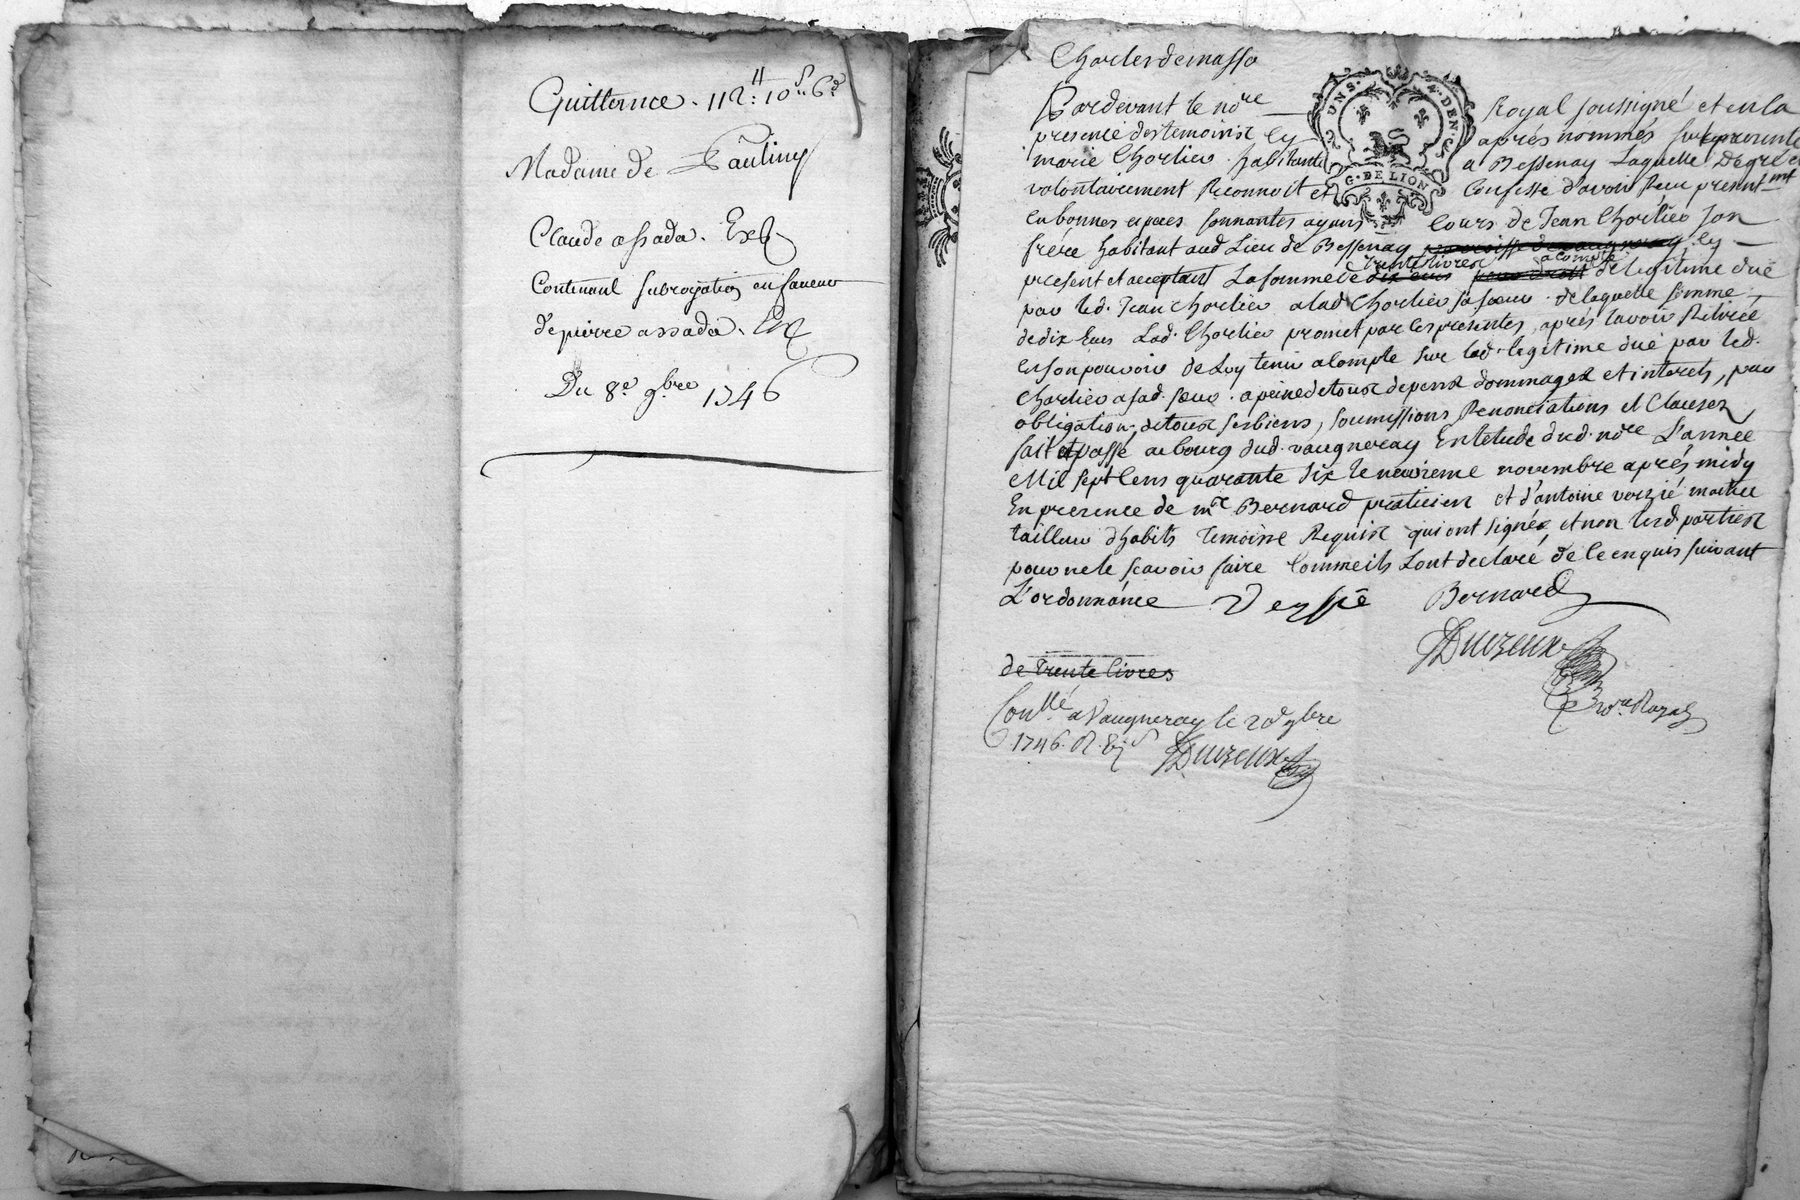 Quittance . 112ᵗᵗ: 10ˢ 6ᵈ
Madame de Pauliny
Claude assada . Ext
Contenant subrogation en faveur
de pierre assada . Ext
Du 8ᵉ 9bre 1746
Charles de masso
UNS. 4. DEN.
G. DE LION
Pardevant le nore Royal soussigné et en la
presence des temoins cy après nommés fut presente
marie Chorlier habitante a Bessenay Laquelle De gré et
volontairement Reconnoit et Confesse d'avoir Reçu presentmt
en bonnes especes sonnantes ayant Cours de Jean Chorlier son
frère habitant aud Lieu de Bessenay paroisse de vaugneray cy
trente livres a compte
present et acceptant La somme de dix ecus pour droit de legitime due
par led. Jean Chorlier a lad Chorlier sa sœur . de laquelle somme
de dix Ecus Lad. Chorlier promet par les presentes, après l'avoir Retirée
en son pouvoir de Luy tenir a Compte sur lad. legitime due par led.
Chorlier a sad. sœur . a peine de tous depens dommages et interets, par
obligation de tous ses biens, soumissions Renonciations et Clauses,
fait et passé au bourg dud. vaugneray En letude dud. nore L'année
Mil sept Cens quarante six le neuvieme novembre après midy
En presence de me Bernard praticien et d'antoine verzié maitre
tailleur d'habits temoins Requis qui ont signés et non lesd. parties
pour ne le scavoir faire Comme ils Lont declaré de ce enquis suivant
L'ordonnance Veyssié Bernard
Duvzeux
nore Royal
de Trente livres
Conllé a Vaugneray le 20 9bre
1746. R. Duvzeux